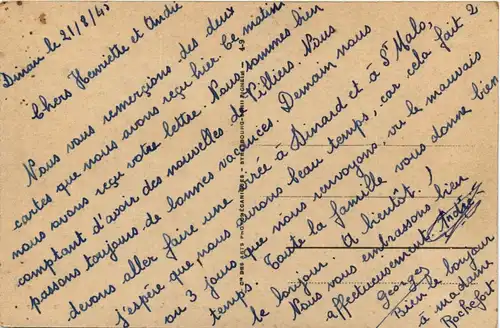 Dinan le 21/8/45
Chers Henriette et André
Nous vous remerçions des deux
cartes que nous avons reçu hier. Ce matin
nous avons reçu votre lettre. Nous sommes bien
comptant d'avoir des nouvelles de Villiers. Nous
passons toujours de bonnes vacances. Demain nous
devons aller faire une virée à Dinard et à St Malo,
j'espère que nous aurons beau temps, car cela fait 2
ou 3 jours que nous renvoyons, vu le mauvais
temps. Toute la famille vous donne bien
le bonjour. A bientôt!
Nous vous embrassons bien
affectueusement Andrée
Georges
Bien le bonjour
à madame
Rochefort